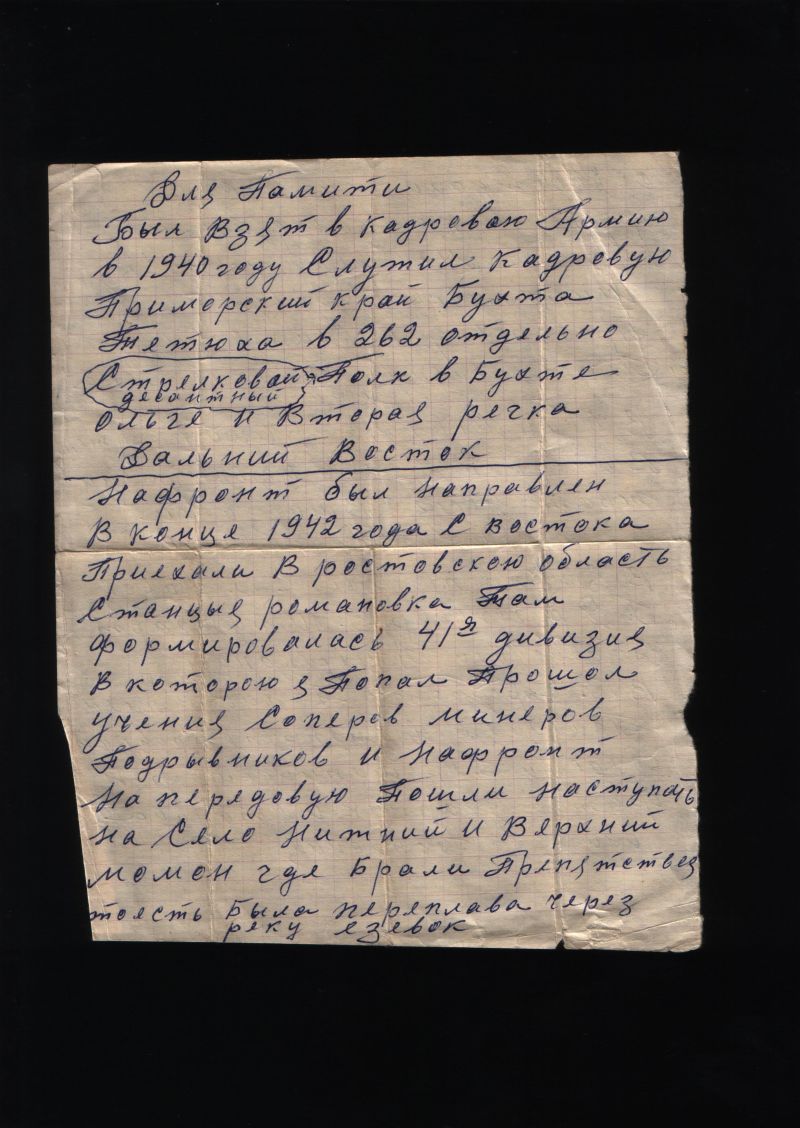 Для Памити
Был Взят в Кадровою Армию
в 1940 году Служил Кадровую
Приморский край Бухта
Тетюха в 262 отдельно
Стрелковой Полк в Бухте
десантный
Ольге и Вторая речка
Дальний Восток
На фронт был направлен
В конце 1942 года С востока
Приехали В ростовскою область
Станцыя романовка Там
формировалась 41я дивизия
в которою я Попал Прошол
учения Соперов минеров
Подрывников и На фронт
На передовую Пошли наступать
на Село Нижний и Верхний
момон где Брали Препятствея
тоесть Была переплава через
реку езевок